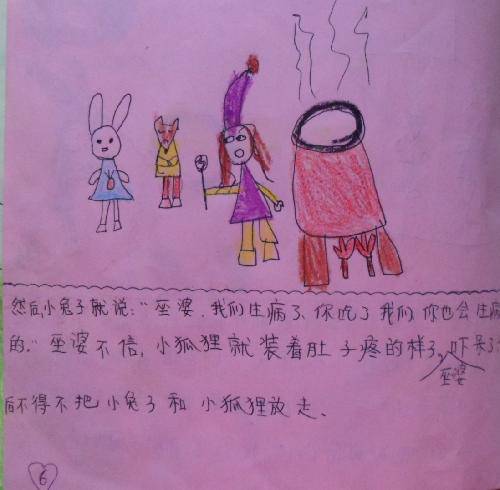 然后,小兔子就说:"巫婆,我们生病了,你吃了我们你也会生病
的。"巫婆不信,小狐狸就装着肚子疼的样子,吓呆了
巫婆
后不得不把小兔子和小狐狸放走、
6